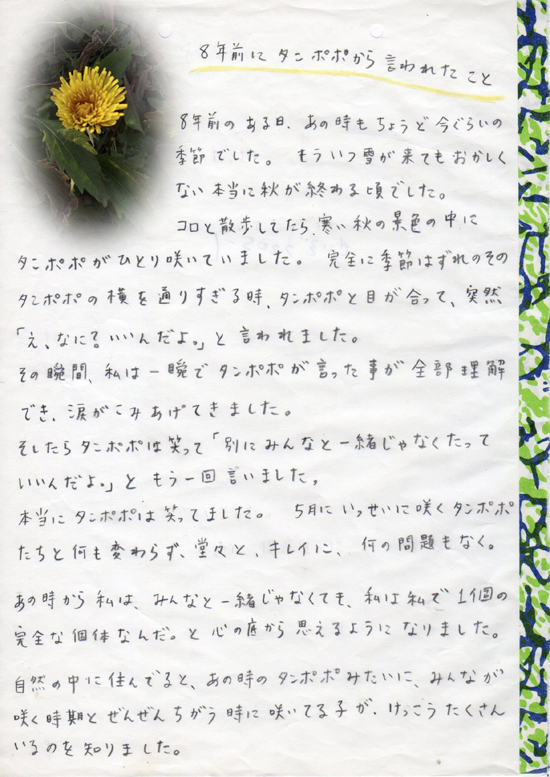 8年前に タンポポから 言われたこと
8年前の ある日、あの時もちょうど今ぐらいの
季節でした。 もういつ雪が来てもおかしく
ない本当に秋が終わる頃でした。
コロと散歩してたら、寒い秋の景色の中に
タンポポがひとり咲いていました。 完全に季節はずれのその
タンポポの横を通りすぎる時、タンポポと目が合って、突然
「え、なに？いいんだよ。」と言われました。
その瞬間、私は一瞬でタンポポが言った事が全部理解
でき、涙がこみあげてきました。
そしたらタンポポは笑って「別にみんなと一緒じゃなくたって
いいんだよ。」ともう一回言いました。
本当にタンポポは笑ってました。 5月にいっせいに咲くタンポポ
たちと何も変わらず、堂々と、キレイに、何の問題もなく。
あの時から私は、みんなと一緒じゃなくても、私は私で1個の
完全な個体なんだ。と心の底から思えるようになりました。
自然の中に住んでると、あの時のタンポポみたいに、みんなが
咲く時期とぜんぜんちがう時に咲いてる子が、けっこうたくさん
いるのを知りました。